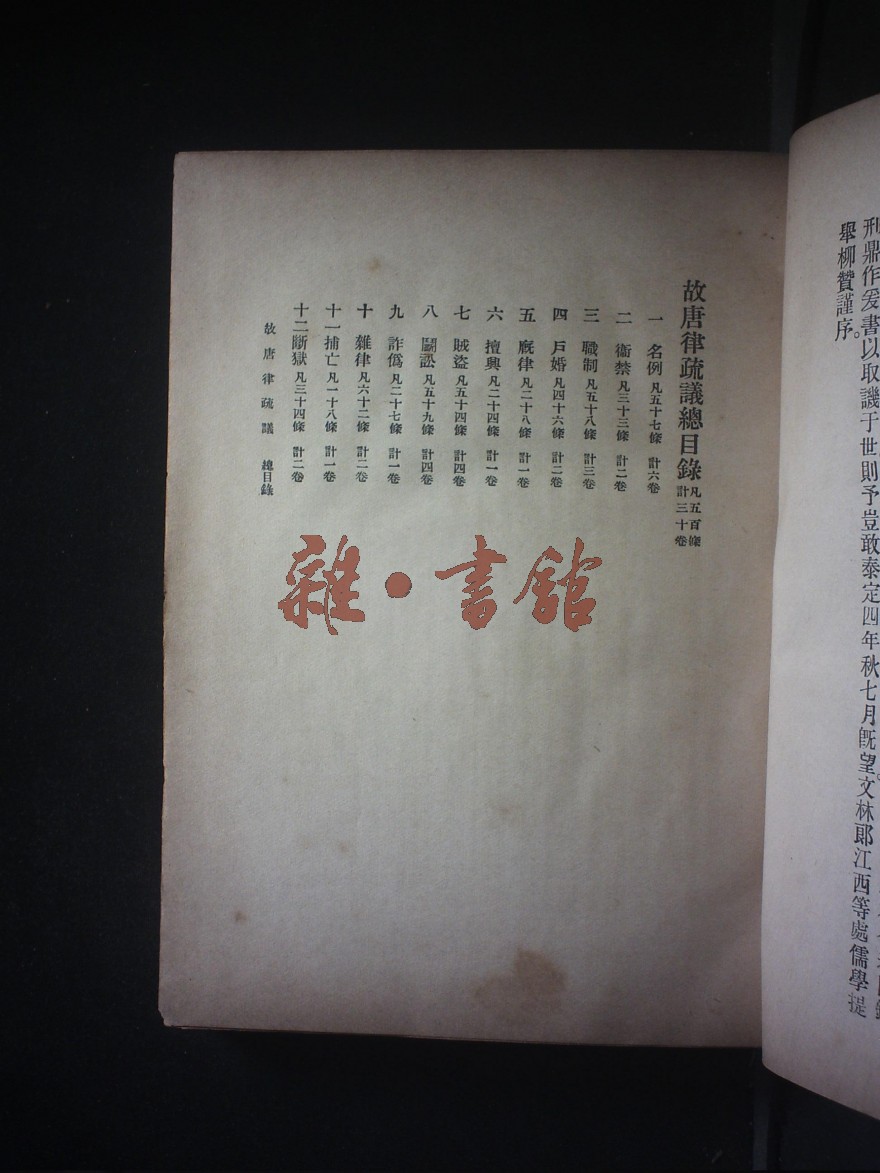 刑鼎作爰書以取譏于世則予豈敢泰定四年秋七月既望。文林郎江西等處儒學提
舉柳贇謹序。
故唐律疏議總目錄 凡五百條 計三十卷
一 名例 凡五十七條 計六卷
二 衞禁 凡三十三條 計二卷
三 職制 凡五十八條 計三卷
四 戶婚 凡四十六條 計二卷
五 廐律 凡二十八條 計一卷
六 擅興 凡二十四條 計一卷
七 賊盜 凡五十四條 計四卷
八 鬭訟 凡五十九條 計四卷
九 詐僞 凡二十七條 計一卷
十 雜律 凡六十二條 計二卷
十一捕亡 凡一十八條 計一卷
十二斷獄 凡三十四條 計二卷
故唐律疏議 總目錄
雜·書館